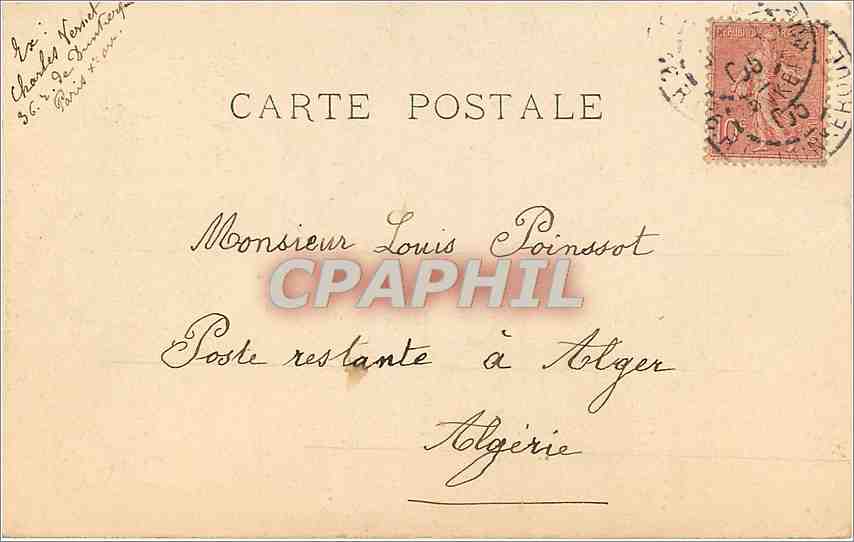 Ex:
Charles Vernet
36. r. de Dunkerque
Paris Xe arr.
CARTE POSTALE
Monsieur Louis Poinssot
CPAPHIL
Poste restante à Alger
Algérie